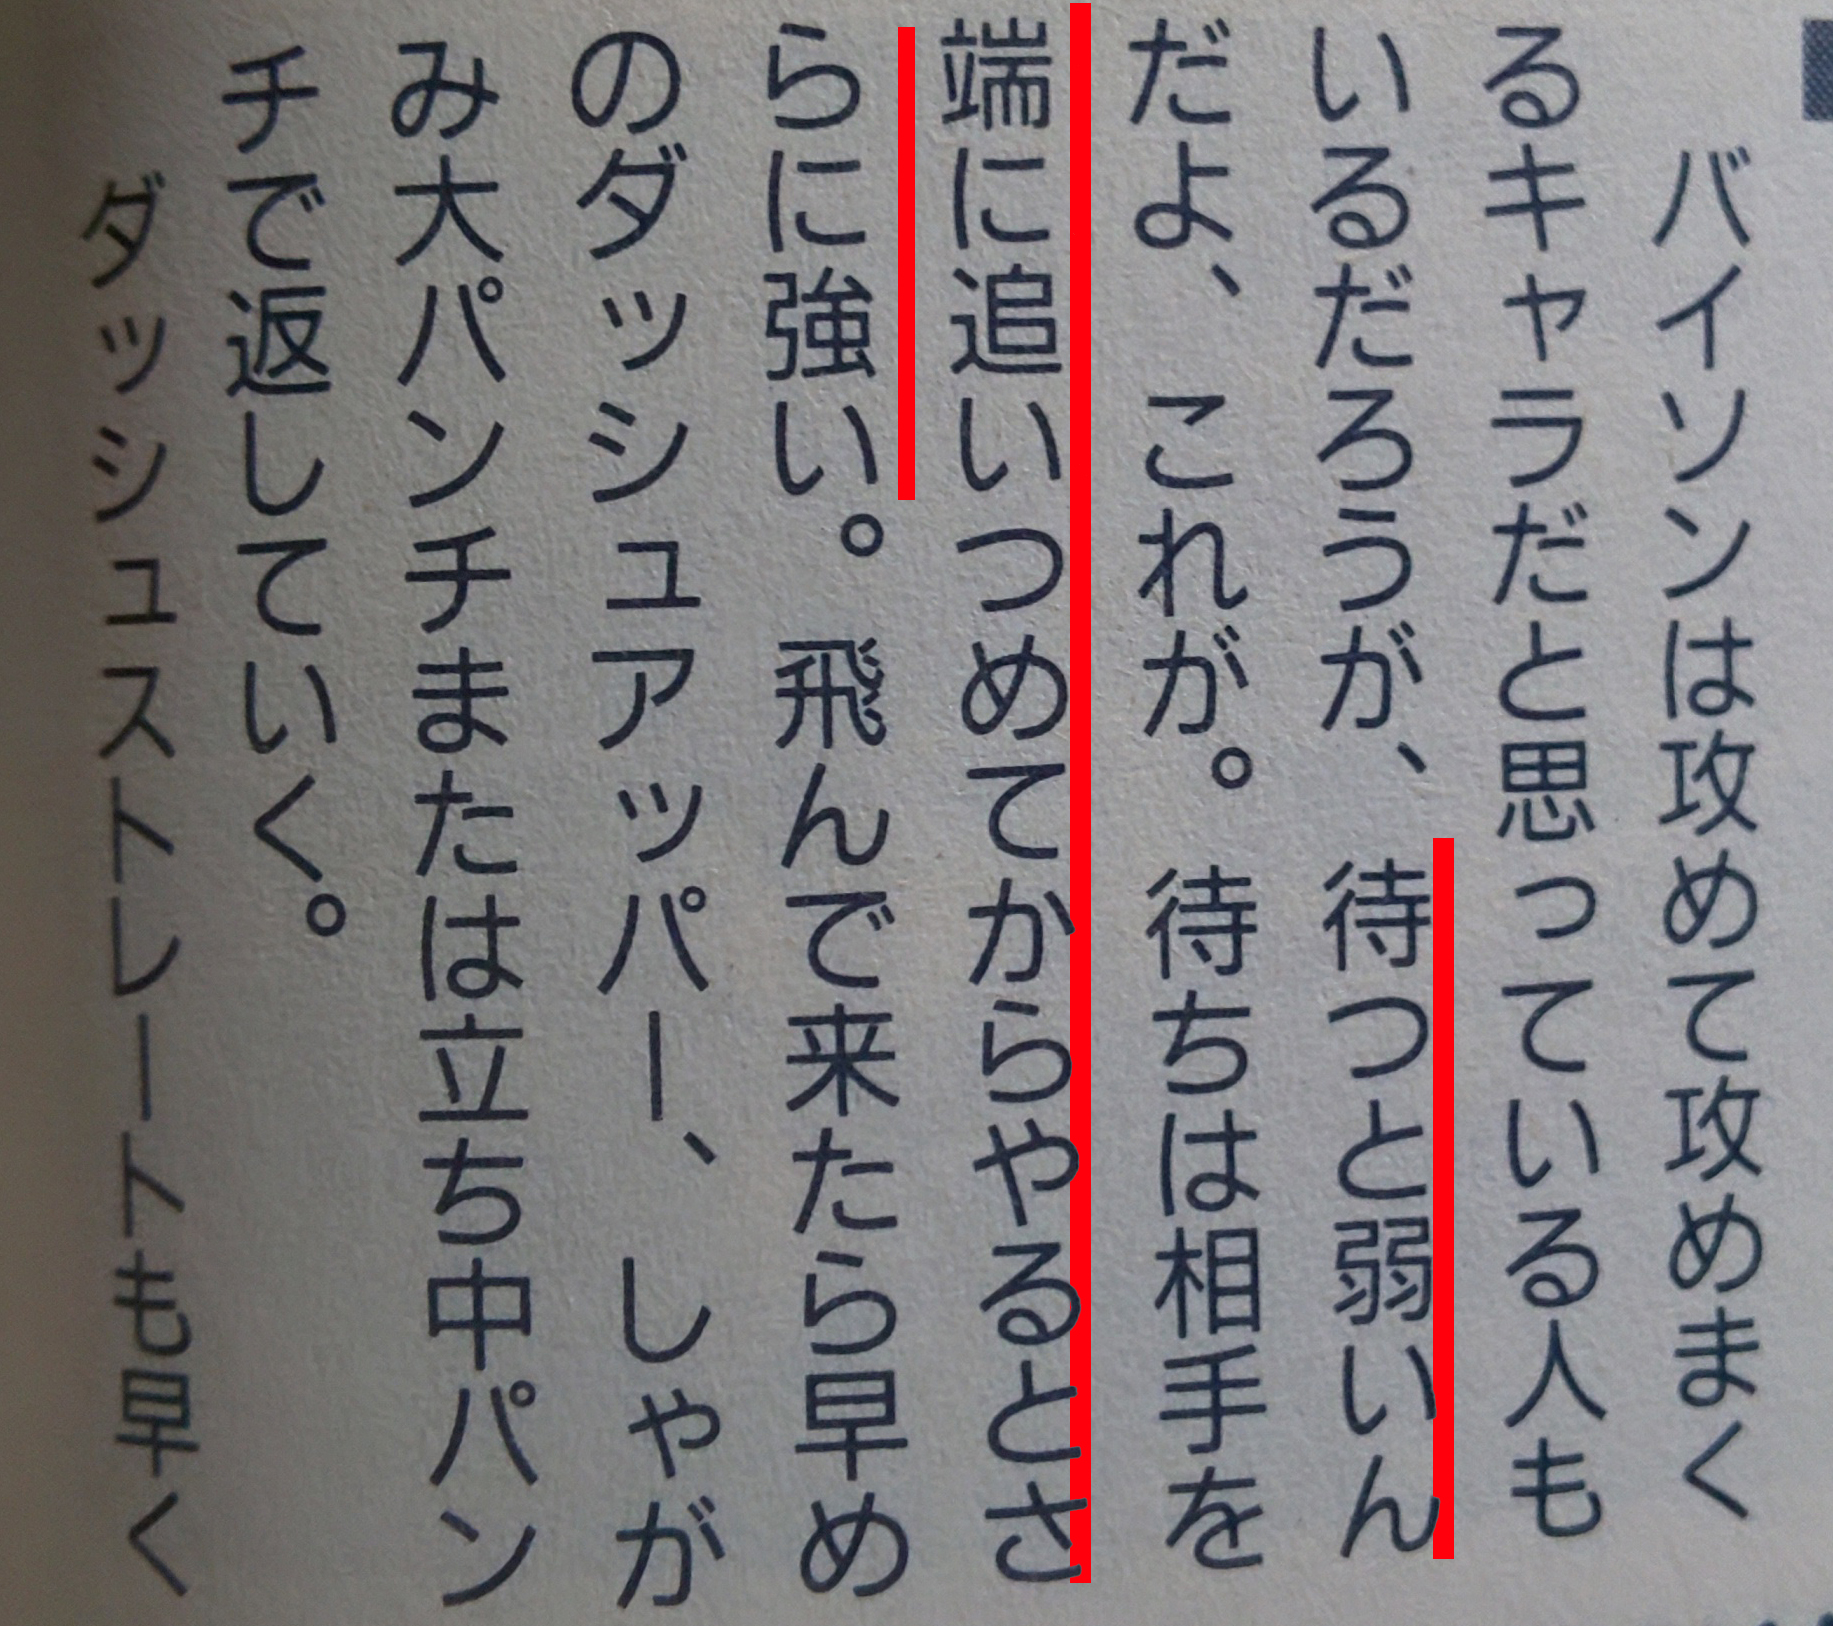 バイソンは攻めて攻めまく
るキャラだと思っている人も
いるだろうが、待つと弱いん
だよ、これが。待ちは相手を
端に追いつめてからやるとさ
らに強い。飛んで来たら早め
のダッシュアッパー、しゃが
み大パンチまたは立ち中パン
チで返していく。
ダッシュストレートも早く